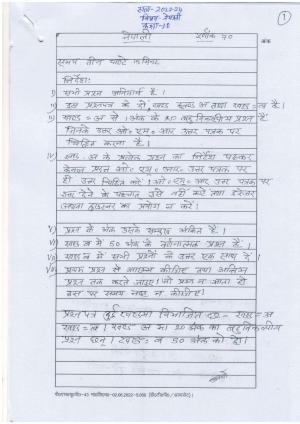 सत्र-2023-24
विषय- नेपाली
कक्षा-12
1
नेपाली
पूर्णांक 70
अंक
समय तीन घण्टे पन्द्रह मिनट
निर्देश:
i) सभी प्रश्न अनिवार्य हैं।
ii) इस प्रश्नपत्र के दो खण्ड, खण्ड अ तथा खण्ड-ब हैं।
iii) खण्ड-अ में 1 अंक के 20 बहुविकल्पीय प्रश्न हैं
जिनके उत्तर ओ० एम० आर उत्तर पत्रक पर
चिह्नित करना है।
iv) खण्ड-अ के प्रत्येक प्रश्न का निर्देश पढ़कर
केवल प्रदत्त ओ० एम० आर० उत्तर पत्रक पर
ही उत्तर चिह्नित करें। ओ० एम० आर उत्तर पत्रक पर
उत्तर देने के पश्चात उसे नहीं काटें तथा इरेजर
अथवा ह्वाइटनर का प्रयोग न करें।
v) प्रश्न के अंक उसके सम्मुख अंकित हैं।
vi) खण्ड ब में 50 अंक के वर्णनात्मक प्रश्न हैं।
vii) खण्ड ब में सभी प्रश्नों के उत्तर एक साथ दें।
viii) प्रथम प्रश्न से आरम्भ कीजिए तथा अन्तिम
प्रश्न तक करते जाइए। जो प्रश्न न आता हो
उस पर समय नष्ट न कीजिए।
प्रश्न पत्र दुई खण्डमा विभाजित छ- खण्ड-अ
खण्ड-ब। खण्ड अ मा 20 अंक का बहुविकल्पीय
प्रश्न छन्। खण्ड-ब 50 अंक को हो।